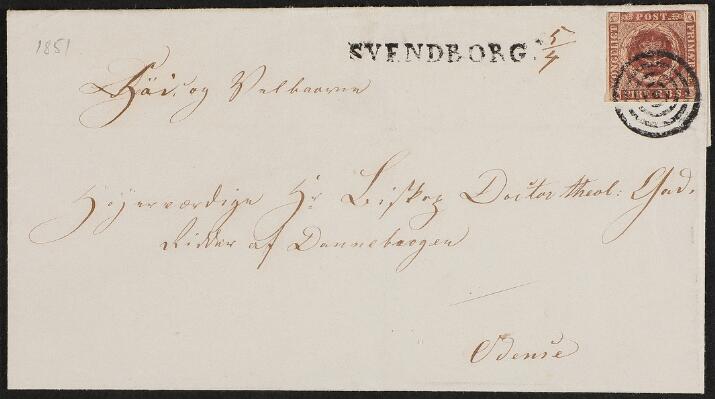 1851
SVENDBORG. 5/4
KONGELIGT POST FRIMÆRKE
FIRE R.B.S.
Höi- og Velbaarne
Höjærværdige Hr Biskop Doctor theol: Gad.
Ridder af Dannebrogen
Odense